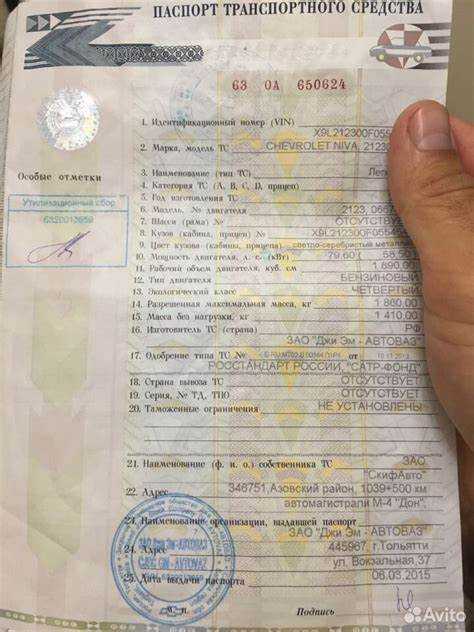 ПАСПОРТ ТРАНСПОРТНОГО СРЕДСТВА
63 ОА 650624
1. Идентификационный номер (VIN) X9L212300F055
2. Марка, модель ТС CHEVROLET NIVA, 2123
3. Наименование (тип ТС) Лег
4. Категория ТС (A, B, C, D, прицеп)
Особые отметки
5. Год изготовления ТС
Утилизационный сбор
6. Модель, № двигателя 2123,
7. Шасси (рама) № ОТСУТСТВ
8. Кузов (кабина, прицеп) № X9L212300F055
9. Цвет кузова (кабины, прицепа) светло-серебристый металл
10. Мощность двигателя, л. с. (кВт) 79.60 (58.50)
11. Рабочий объем двигателя, куб. см 1 690.0
12. Тип двигателя БЕНЗИНОВЫЙ
13. Экологический класс ЧЕТВЕРТЫЙ
14. Разрешенная максимальная масса, кг 1 860.00
15. Масса без нагрузки, кг 1 410.00
16. Изготовитель ТС (страна) РФ,
ЗАО "Джи Эм - АВТОВАЗ"
17. Одобрение типа ТС №
РОССТАНДАРТ РОССИИ, "САТР-ФОНД"
18. Страна вывоза ТС ОТСУТСТВУЕТ
19. Серия, № ТД, ТПО ОТСУТСТВУЕТ
20. Таможенные ограничения НЕ УСТАНОВЛЕНЫ
21. Наименование (ф. и. о.) собственника ТС ЗАО
"СкифАвто"
22. Адрес 346751, Азовский район, 1039+500 км
автомагистрали М-4 "Дон".
23. Наименование организации, выдавшей паспорт
ЗАО "Джи Эм - АВТОВАЗ"
24. Адрес 445967, г.Тольятти
ул. Вокзальная, 37
25. Дата выдачи паспорта 06.03.2015
М. п. Подпись
Avito